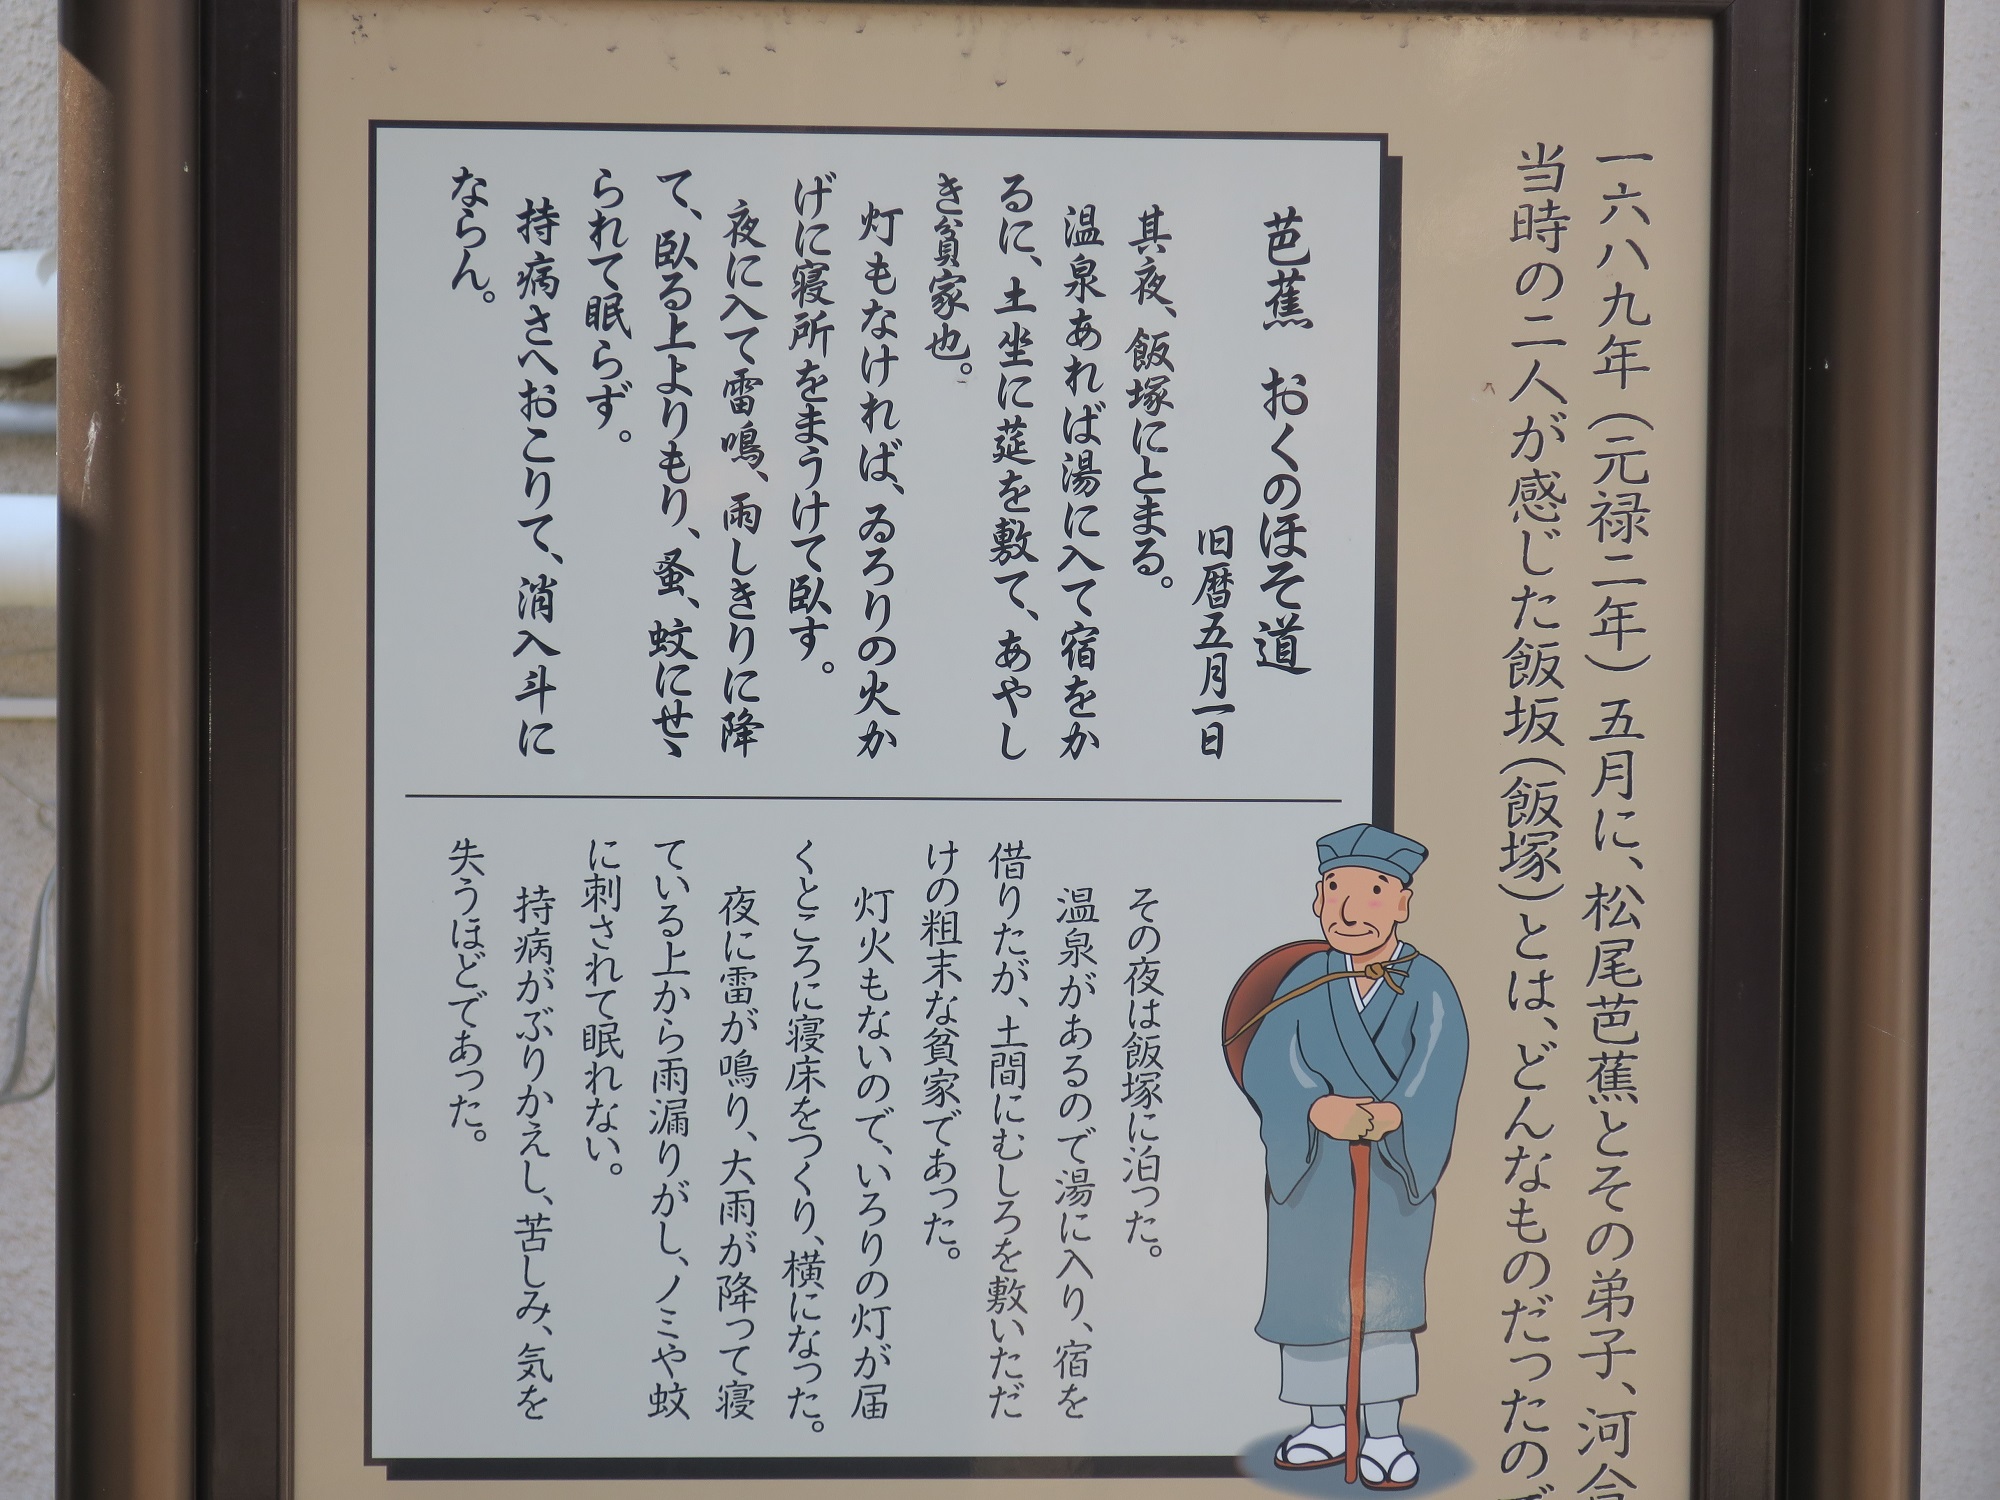 一六八九年(元禄二年)五月に、松尾芭蕉とその弟子、河合
当時の二人が感じた飯坂(飯塚)とは、どんなものだったので
芭蕉 おくのほそ道
旧暦五月一日
其夜、飯塚にとまる。
温泉あれば湯に入て宿をか
るに、土坐に莚を敷て、あやし
き貧家也。
灯もなければ、ゐろりの火か
げに寝所をまうけて臥す。
夜に入て雷鳴、雨しきりに降
て、臥る上よりもり、蚤、蚊にせゝ
られて眠らず。
持病さへおこりて、消入斗に
ならん。
その夜は飯塚に泊った。
温泉があるので湯に入り、宿を
借りたが、土間にむしろを敷いただ
けの粗末な貧家であった。
灯火もないので、いろりの灯が届
くところに寝床をつくり、横になった。
夜に雷が鳴り、大雨が降って寝
ている上から雨漏りがし、ノミや蚊
に刺されて眠れない。
持病がぶりかえし、苦しみ、気を
失うほどであった。